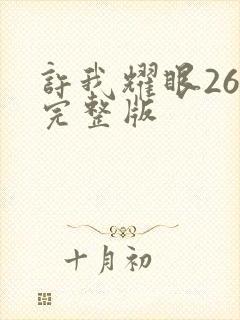 許我耀眼26
完整版
十月初